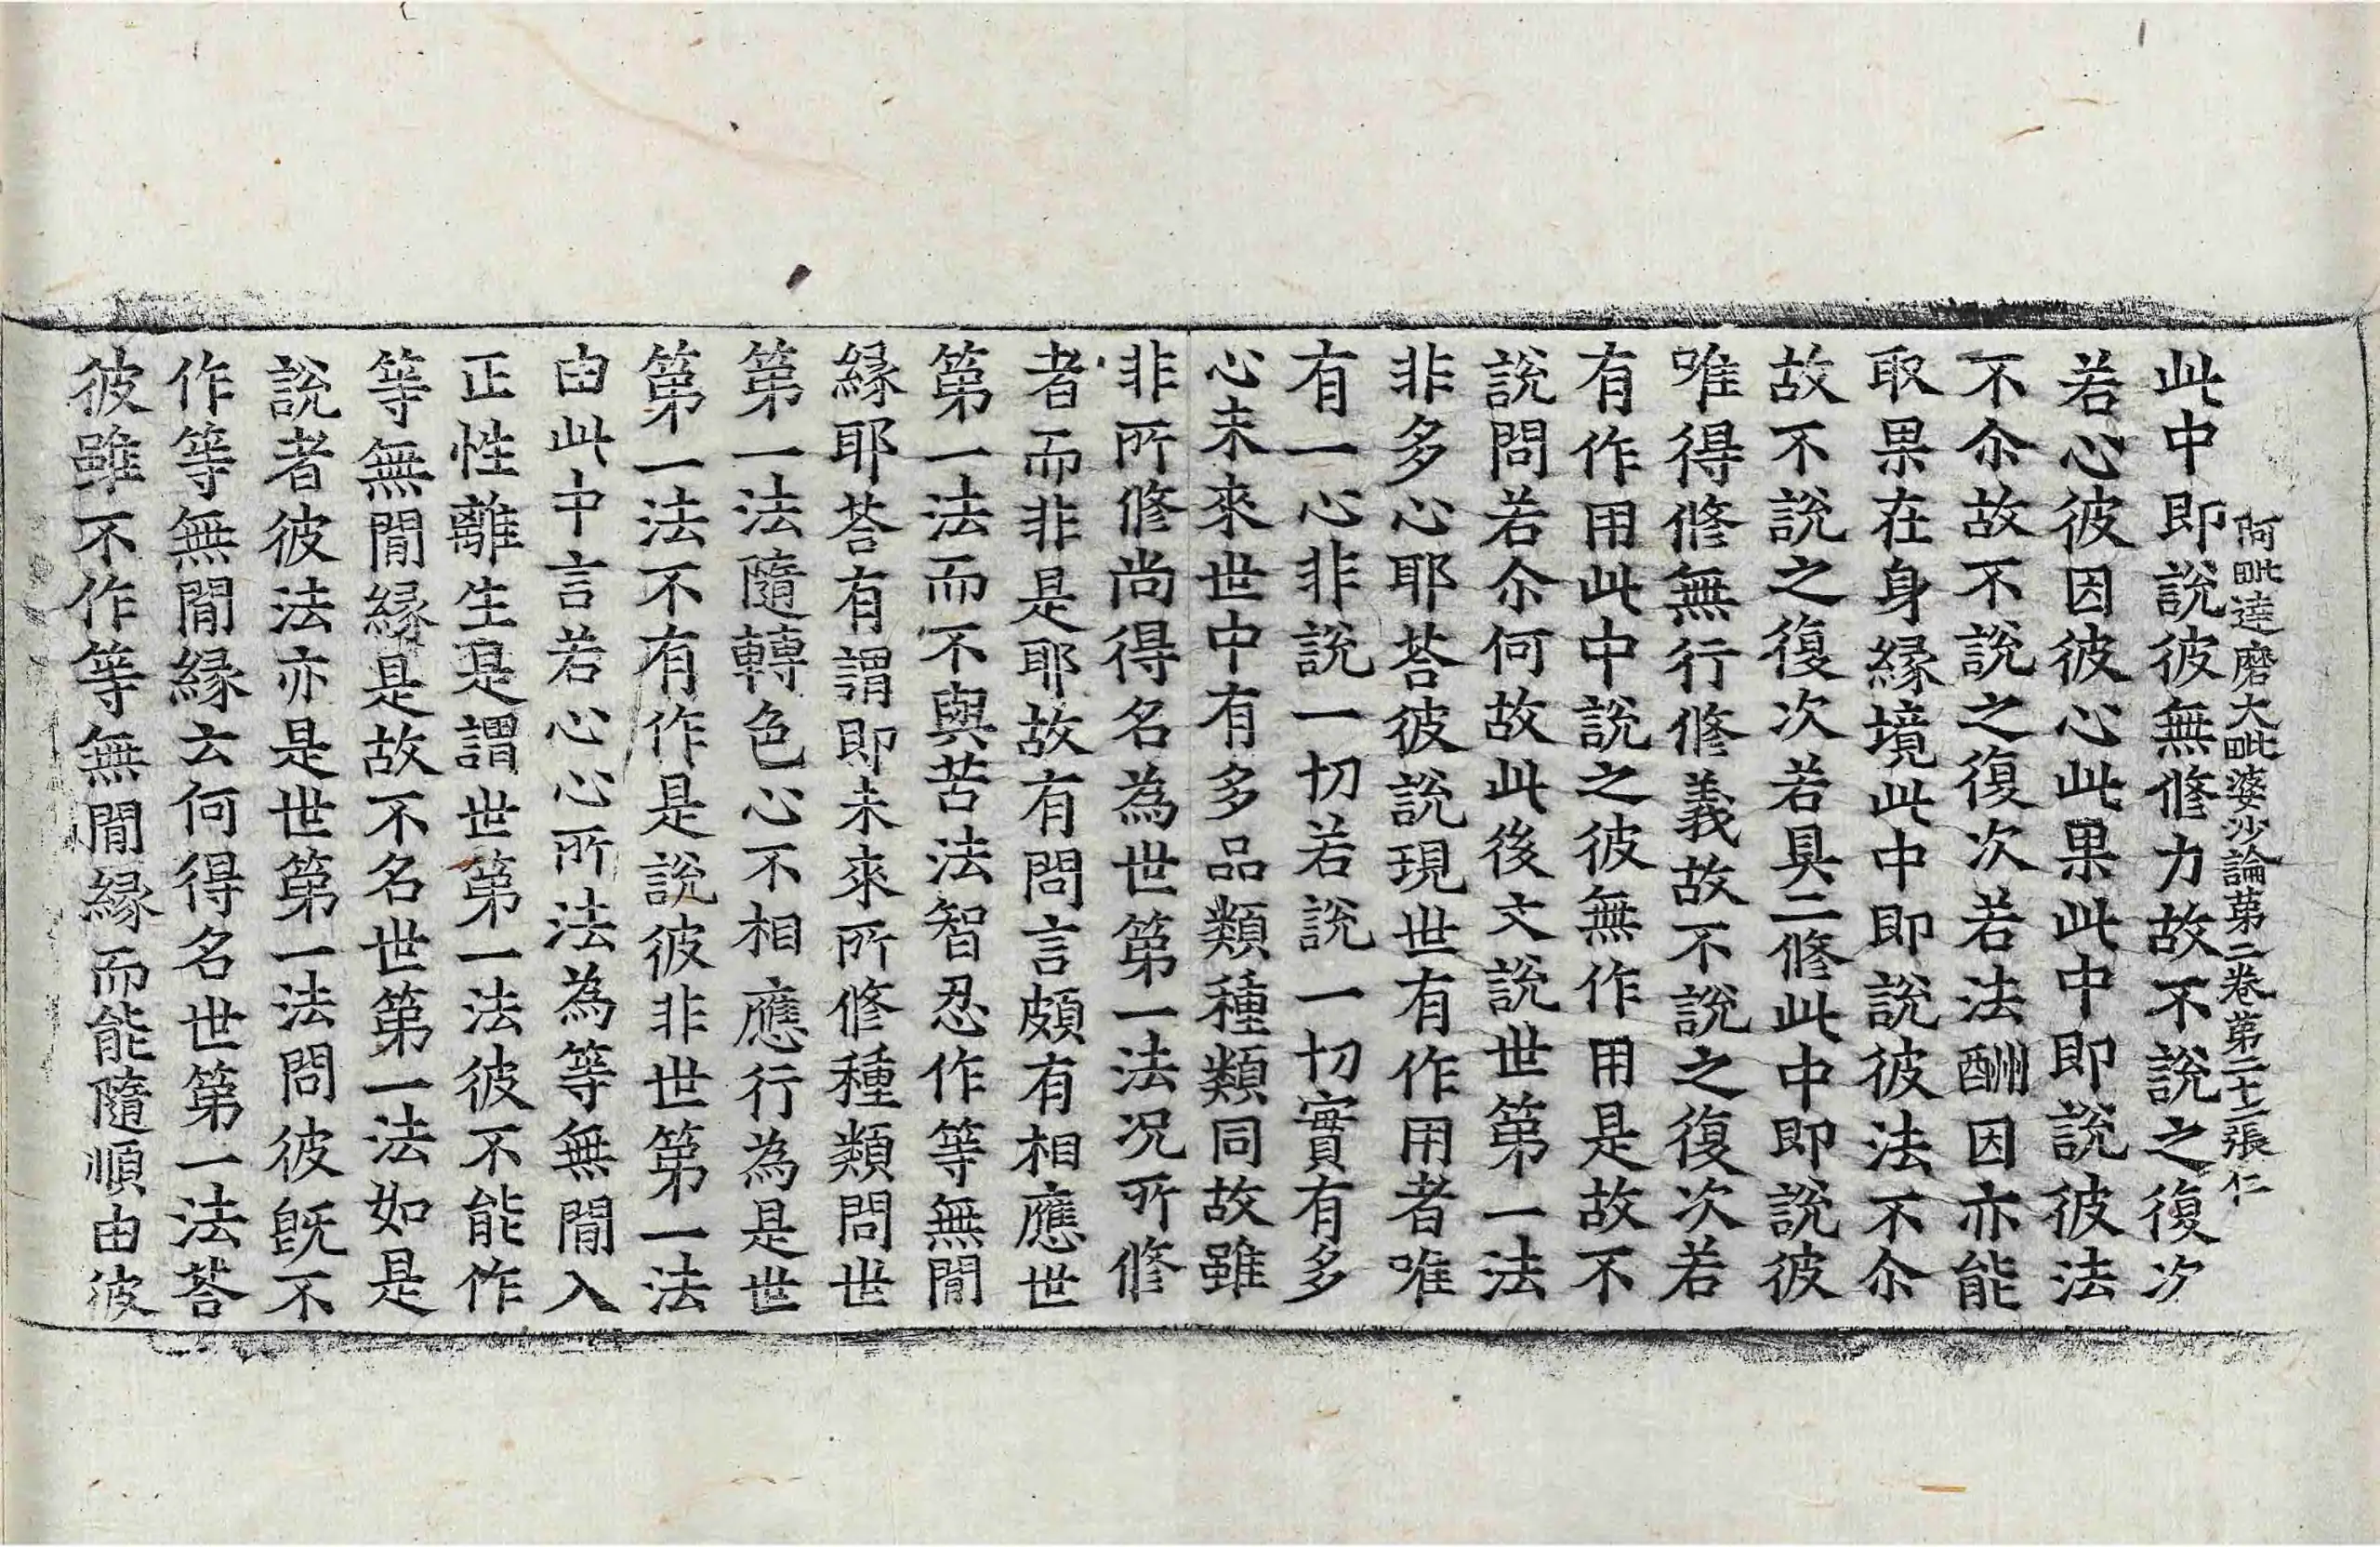 阿毗達磨大毗婆沙論第三卷第二十二張仁
此中即說彼無修力故不說之復次
若心彼因彼心此果此中即說彼法
不尒故不說之復次若法酬因亦能
取果在身緣境此中即說彼法不尒
故不說之復次若具二修此中即說彼
唯得修無行修義故不說之復次若
有作用此中說之彼無作用是故不
說問若尒何故此後文說世第一法
非多心耶荅彼說現世有作用者唯
有一心非說一切若說一切實有多
心未來世中有多品類種類同故雖
非所修尚得名為世第一法况所修
者而非是耶故有問言頗有相應世
第一法而不與苦法智忍作等無閒
緣耶荅有謂即未來所修種類問世
第一法隨轉色心不相應行為是世
第一法不有作是說彼非世第一法
由此中言若心心所法為等無閒入
正性離生是謂世第一法彼不能作
等無閒緣是故不名世第一法如是
說者彼法亦是世第一法問彼旣不
作等無閒緣云何得名世第一法荅
彼雖不作等無閒緣而能隨順由彼